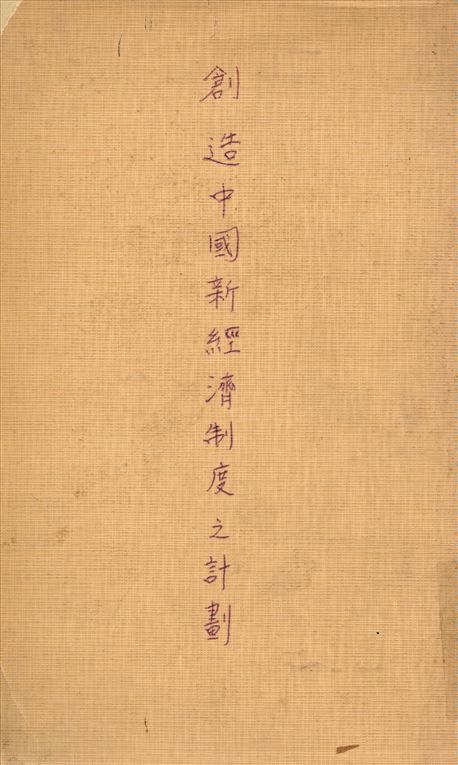 創造中國新經濟制度之計劃